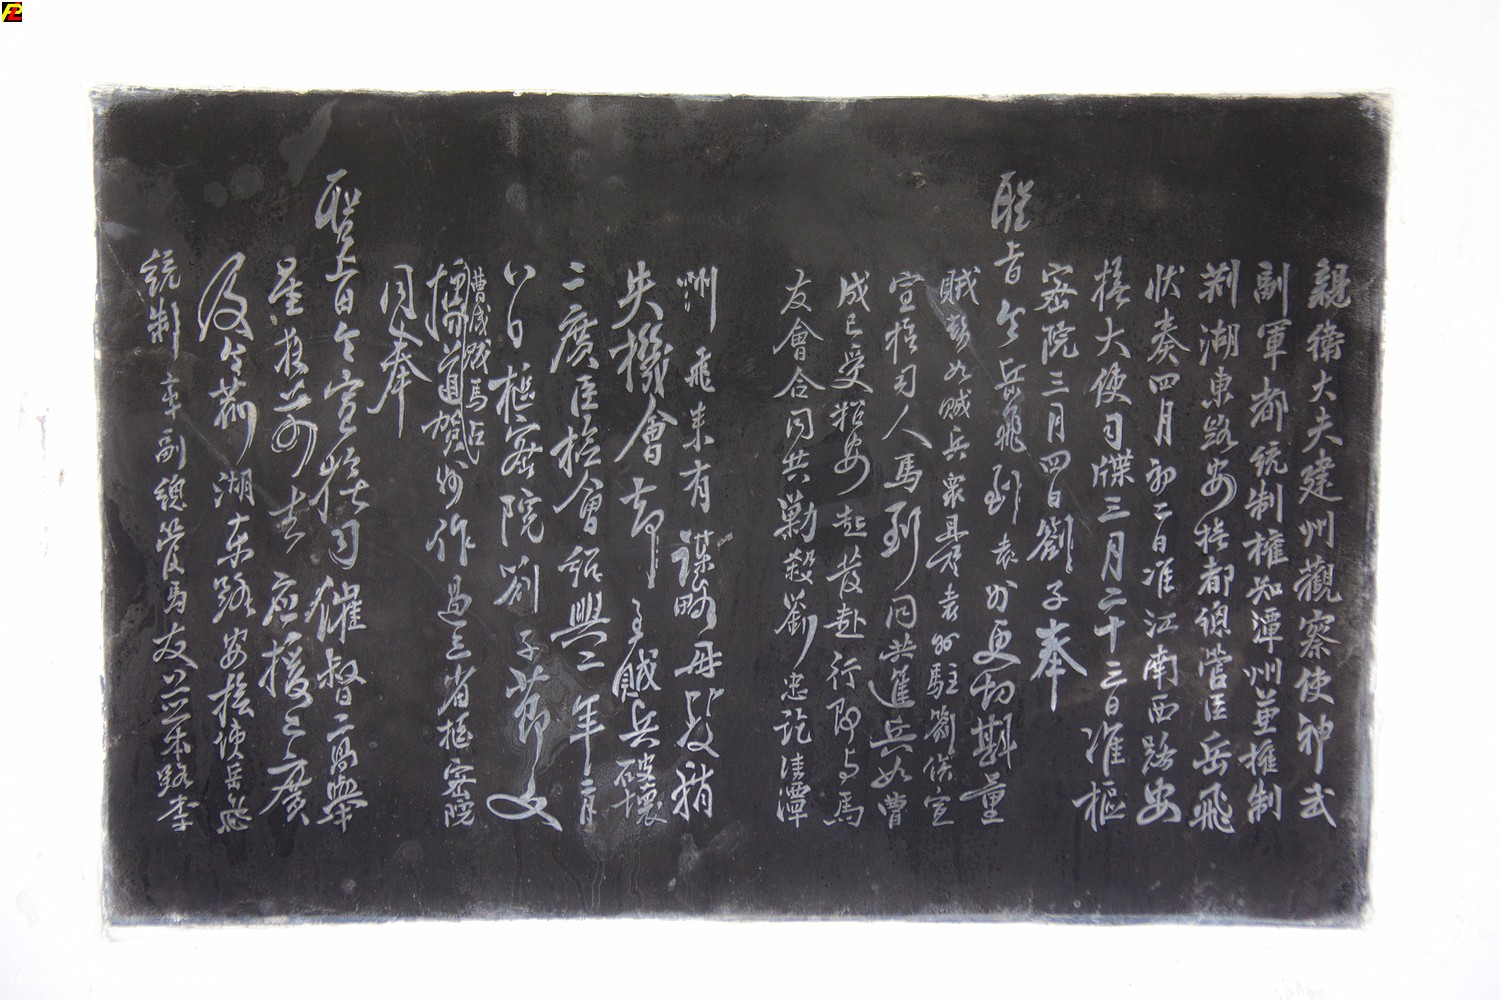 親衛大夫建州觀察使神武
副軍都統制權知潭州兼權制
荆湖東路安撫都總管臣岳飛
狀奏四月初二日准江南西路安
撫大使司牒三月二十三日准樞
密院三月四日劄子奉
聖旨令岳飛到袁州更切斟量
賊勢如賊兵衆且於袁州駐劄俟宣
宣撫司人馬到同共進兵如曹
成已受招安起發赴行即與馬
友會合同共勦殺劉忠訖
潭
州飛素有謀略毋致稍
失機會却賊兵破壞
二廣臣檢會紹興二年二月
八日樞密院劄子節文
曹成賊馬占
道賀州作過三省樞密院
同奉
聖旨令宣撫司催督
星夜前去應援二廣
及令荊湖東路安撫使岳飛
統制副總管馬友并本路李